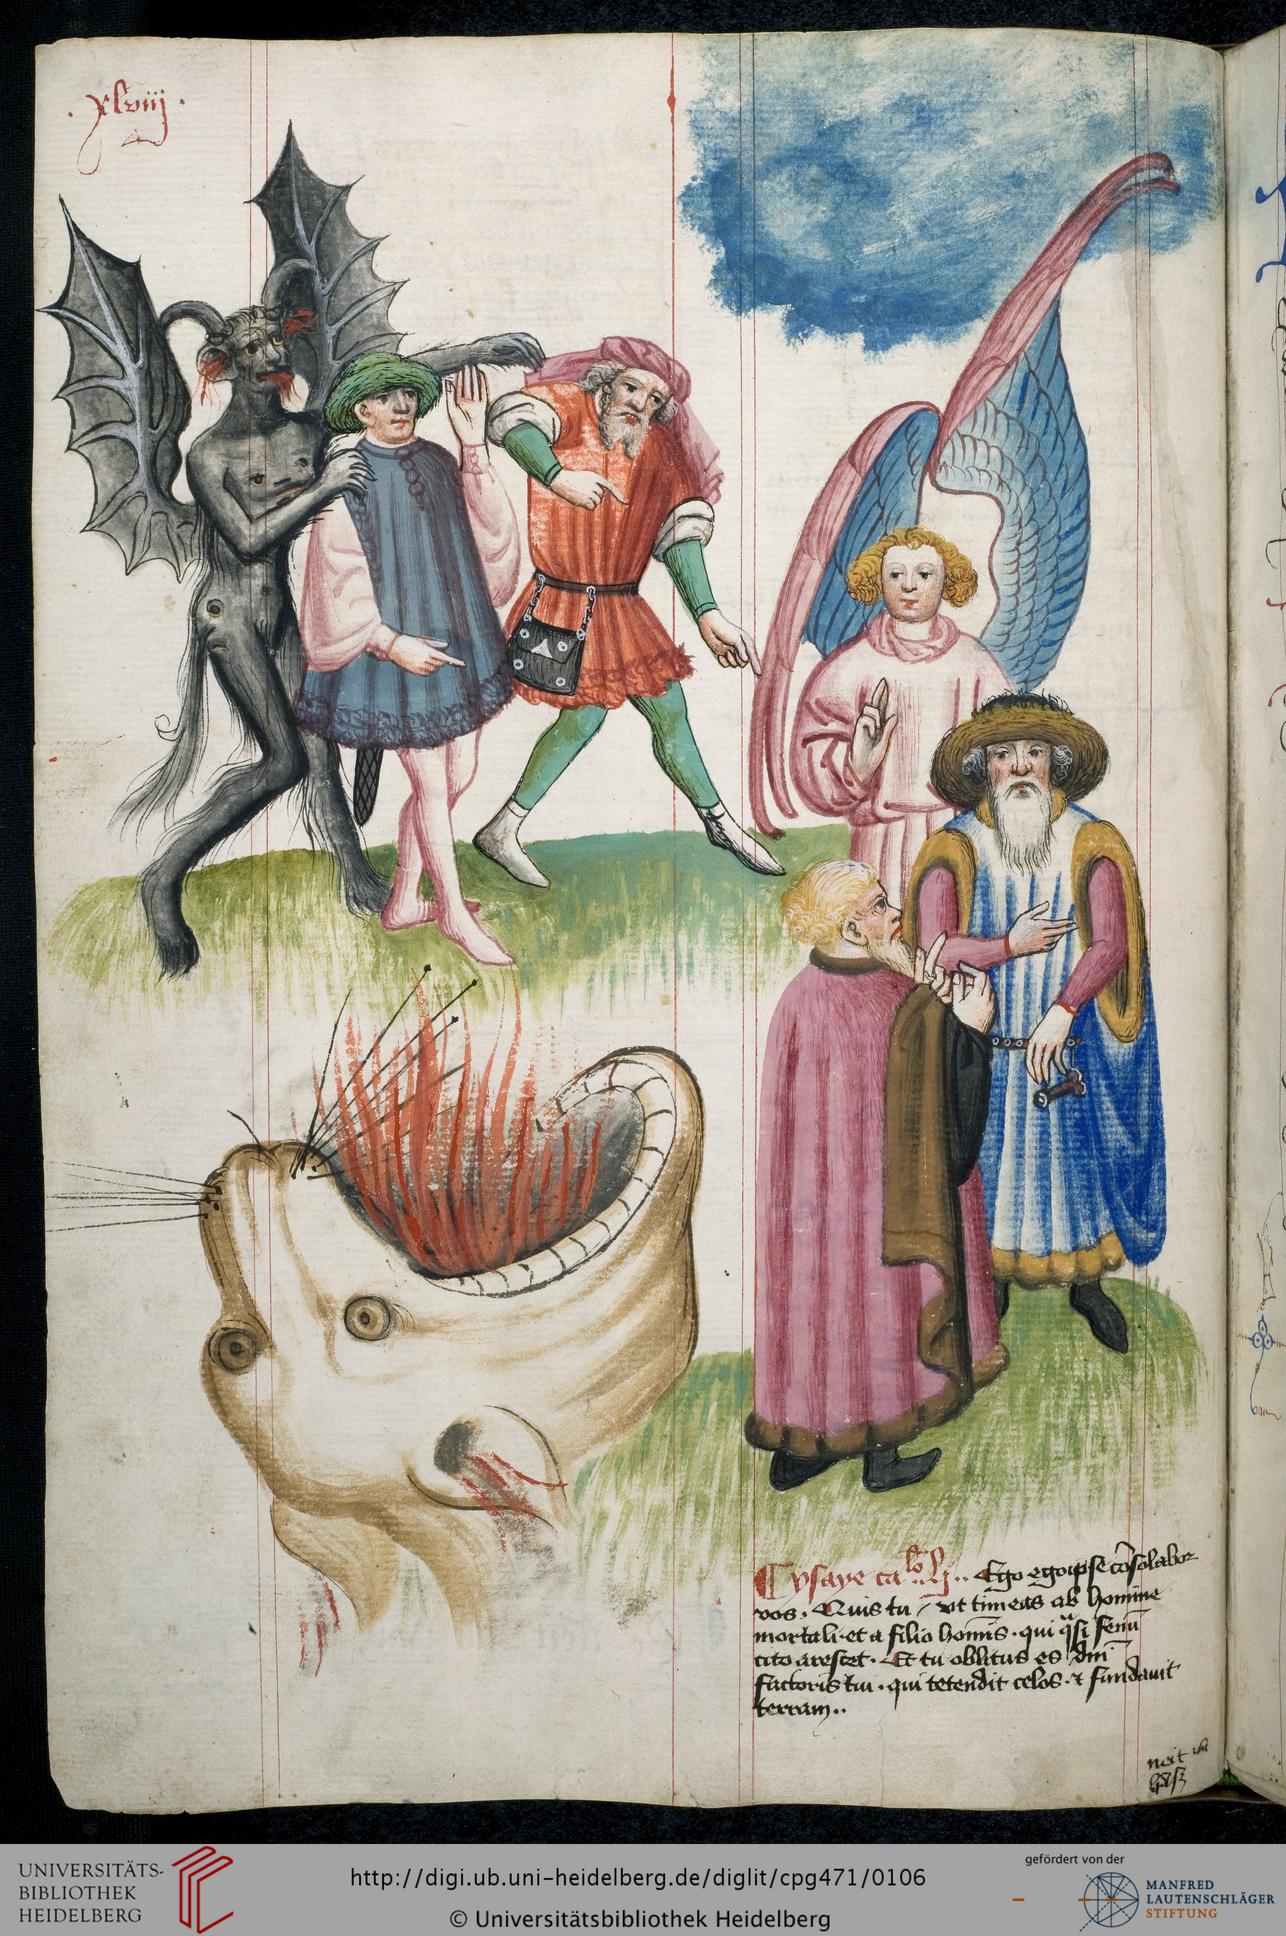 .xlviij.
Ysaye ca.lo lj.. Ego ego ipse cōsolabor
vos. Quis tu / vt timeas ab homine
mortali et a filio homīs. qui qͣsi fenū
cito arescet. Et tu oblitus es dn̄i
factoris tui. qui tetendit celos. et fundauit
terram..
neit
UNIVERSITÄTS-
BIBLIOTHEK
HEIDELBERG
http://digi.ub.uni-heidelberg.de/diglit/cpg471/0106
© Universitätsbibliothek Heidelberg
gefördert von der
MANFRED
LAUTENSCHLÄGER
STIFTUNG